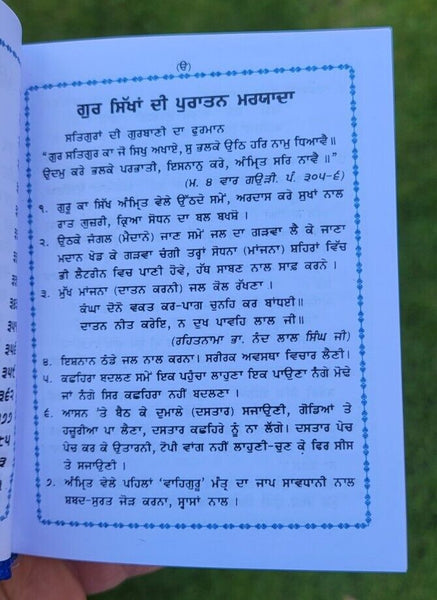 (ੳ)
ਗੁਰ ਸਿੱਖਾਂ ਦੀ ਪੁਰਾਤਨ ਮਰਯਾਦਾ
ਸਤਿਗੁਰਾਂ ਦੀ ਗੁਰਬਾਣੀ ਦਾ ਫੁਰਮਾਨ
“ਗੁਰ ਸਤਿਗੁਰ ਕਾ ਜੋ ਸਿਖੁ ਅਖਾਏ, ਸੁ ਭਲਕੇ ਉਠਿ ਹਰਿ ਨਾਮੁ ਧਿਆਵੈ॥
ਉਦਮੁ ਕਰੇ ਭਲਕੇ ਪਰਭਾਤੀ, ਇਸਨਾਨੁ ਕਰੇ, ਅੰਮ੍ਰਿਤ ਸਰਿ ਨਾਵੈ ॥”
(ਮ. ੪ ਵਾਰ ਗਉੜੀ. ਪੰ. ੩੦੫-੬)
੧. ਗੁਰੂ ਕਾ ਸਿੱਖ ਅੰਮ੍ਰਿਤ ਵੇਲੇ ਉੱਠਦੇ ਸਮੇਂ, ਅਰਦਾਸ ਕਰੇ ਸੁਖਾਂ ਨਾਲ
ਰਾਤ ਗੁਜ਼ਰੀ, ਕ੍ਰਿਆ ਸੋਧਨ ਦਾ ਬਲ ਬਖਸ਼ੋ ।
੨. ਉਠਕੇ ਜੰਗਲ (ਮੈਦਾਨੇ) ਜਾਣ ਸਮੇਂ ਜਲ ਦਾ ਗੜਵਾ ਲੈ ਕੇ ਜਾਣਾ
ਮਦਾਨ ਖੋਡ ਕੇ ਗੜਵਾ ਚੰਗੀ ਤਰ੍ਹਾਂ ਸੋਧਨਾ (ਮਾਂਜਨਾ) ਸ਼ਹਿਰਾਂ ਵਿੱਚ
ਭੀ ਲੈਟਰੀਨ ਵਿਚ ਪਾਣੀ ਹੋਵੇ, ਹੱਥ ਸਾਬਣ ਨਾਲ ਸਾਫ਼ ਕਰਨੇ ।
੩. ਮੁੱਖ ਮਾਂਜਨਾ (ਦਾਤਨ ਕਰਨੀ) ਜਲ ਕੋਲ ਰੱਖਣਾ ।
ਕੰਘਾ ਦੋਨੋ ਵਕਤ ਕਰ-ਪਾਗ ਚੁਨਹਿ ਕਰ ਬਾਂਧਈ॥
ਦਾਤਨ ਨੀਤ ਕਰੇਇ, ਨ ਦੁਖ ਪਾਵਹਿ ਲਾਲ ਜੀ॥
(ਰਹਿਤਨਾਮਾ ਭਾ. ਨੰਦ ਲਾਲ ਸਿੰਘ ਜੀ)
੪. ਇਸ਼ਨਾਨ ਠੰਡੇ ਜਲ ਨਾਲ ਕਰਨਾ। ਸਰੀਰਕ ਅਵਸਥਾ ਵਿਚਾਰ ਲੈਣੀ।
੫. ਕਛਹਿਰਾ ਬਦਲਣ ਸਮੇਂ ਇਕ ਪਹੁੰਚਾ ਲਾਹੁਣਾ ਇਕ ਪਾਉਣਾ ਨੰਗੇ ਮੋਢੇ
ਜਾਂ ਨੰਗੇ ਸਿਰ ਕਛਹਿਰਾ ਨਹੀਂ ਬਦਲਣਾ ।
੬. ਆਸਨ 'ਤੇ ਬੈਠ ਕੇ ਦੁਮਾਲੇ (ਦਸਤਾਰ) ਸਜਾਉਣੀ, ਗੋਡਿਆਂ ਤੇ
ਹਜ਼ੂਰੀਆ ਪਾ ਲੈਣਾ, ਦਸਤਾਰ ਕਛਹਿਰੇ ਨੂੰ ਨਾ ਲੱਗੇ। ਦਸਤਾਰ ਪੇਚ
ਪੇਚ ਕਰ ਕੇ ਉਤਾਰਨੀ, ਟੋਪੀ ਵਾਂਗ ਨਹੀਂ ਲਾਹੁਣੀ-ਚੁਣ ਕੇ ਫਿਰ ਸੀਸ
ਤੇ ਸਜਾਉਣੀ ।
੭. ਅੰਮ੍ਰਿਤ ਵੇਲੇ ਪਹਿਲਾਂ ‘ਵਾਹਿਗੁਰੂ’ ਮੰਤ੍ਰ ਦਾ ਜਾਪ ਸਾਵਧਾਨੀ ਨਾਲ
ਸ਼ਬਦ-ਸੁਰਤ ਜੋੜ ਕਰਨਾ, ਸ੍ਵਾਸਾਂ ਨਾਲ ।